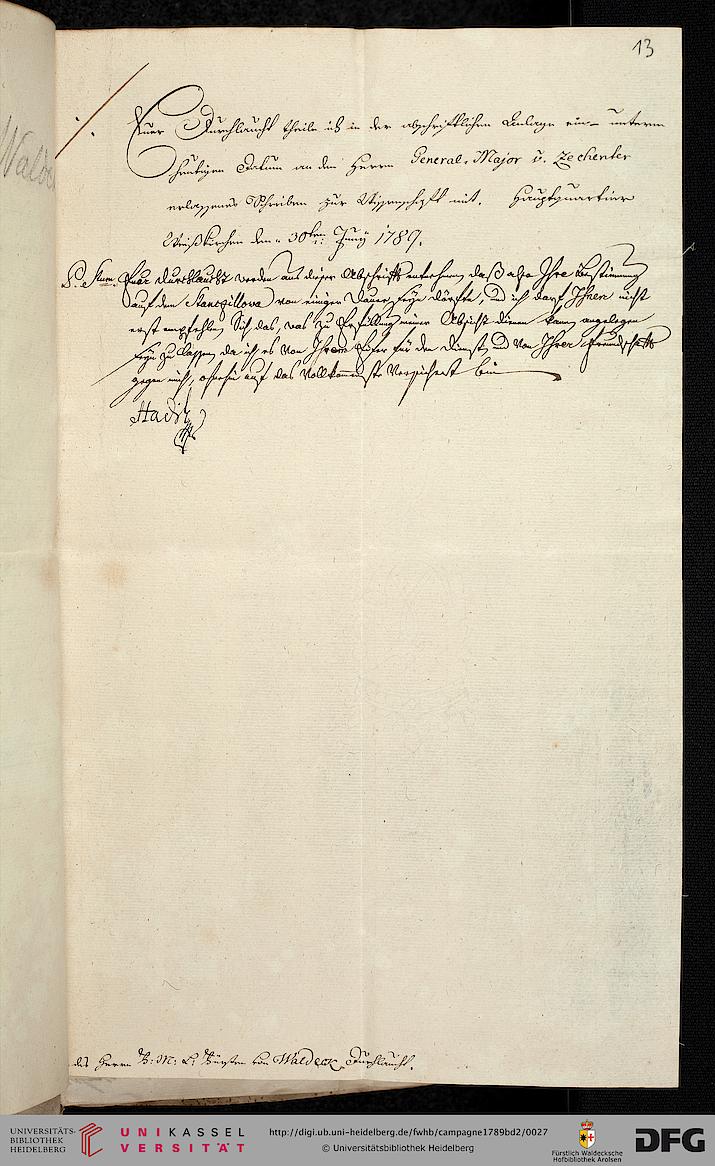 13
Euer Durchlaucht theile ich in der abschriftlichen Anlage ein unterm
heutigen Datum an den Herrn General-Major v. Zechenter
erlassenes Schreiben zur Wissenschaft mit. Hauptquartier
Weißkirchen den 30ten Juny 1789.
P. Scrum. Euer Durchlaucht werden aus dieser Abschrift entnehmen daß also Ihre Bestimmung
auf dem von einiger Dauer seyn dürfte, und ich darf Ihnen nicht
erst empfehlen Sich das, was zu Erfüllung meiner Absicht dienen kann angelegen
seyn zu lassen, da ich es von Ihrem Eifer für den Dienst, und von Ihrer Freundschaft
gegen mich, ohnehin auf das Vollkommenste Versichert bin
Hadik
des Herrn F: M: L: Fürsten von Waldeck Durchlaucht.
Walde
UNIVERSITÄTS-
BIBLIOTHEK
HEIDELBERG
UNIKASSEL
VERSITÄT
http://digi.ub.uni-heidelberg.de/fwhb/campagne1789bd2/0027
© Universitätsbibliothek Heidelberg
Fürstlich Waldecksche
Hofbibliothek Arolsen
DFG